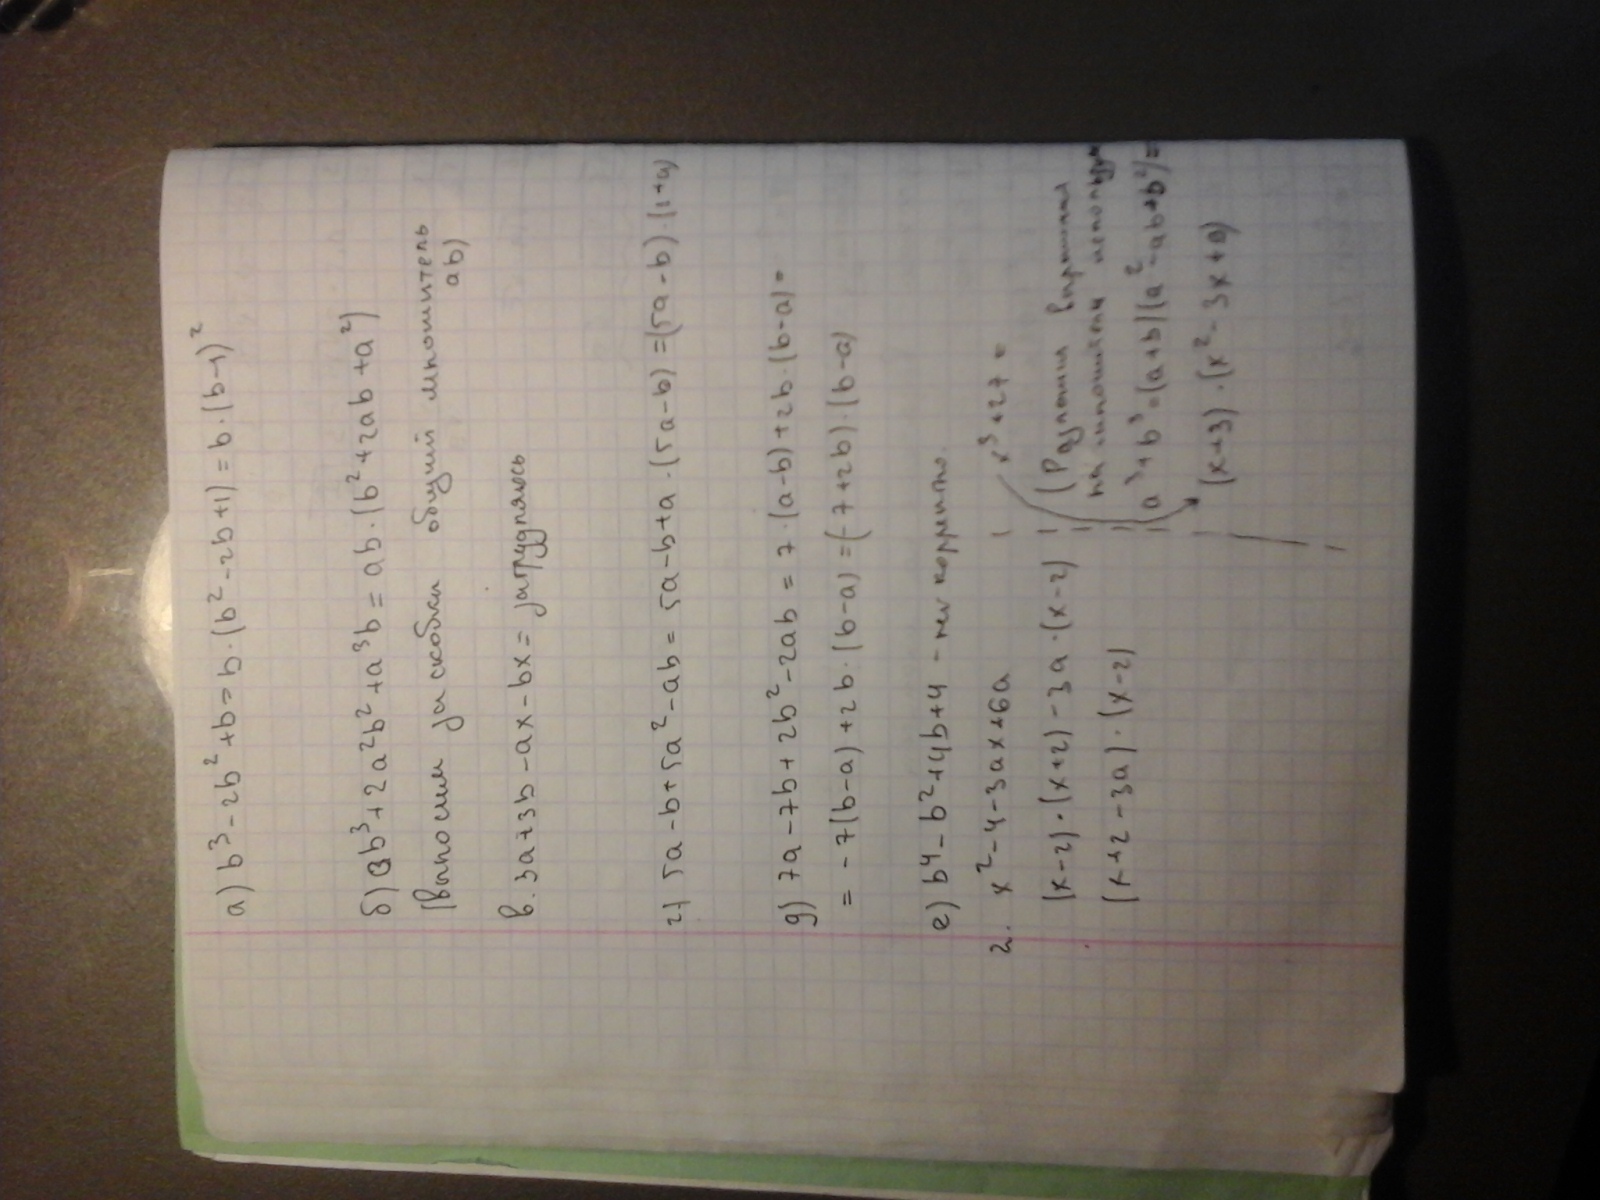 а) b³-2b²+b=b·(b²-2b+1)=b·(b-1)²
б) ab³+2a²b²+a³b=ab·(b²+2ab+a²)
(выносим за скобки общий множитель
ab)
в. 3a+3b-ax-bx= затрудняюсь
г) 5a-b+5a²-ab=5a-b+a·(5a-b)=(5a-b)·(1+a)
д) 7a-7b+2b²-2ab=7·(a-b)+2b·(b-a)=
=-7(b-a)+2b·(b-a)=(-7+2b)·(b-a)
е) b⁴-b²+4b+4 - не корректно.
2. x²-4-3ax+6a
(x-2)·(x+2)-3a·(x-2)
(x+2-3a)·(x-2)
x³+27=
(Разложим выражения
на множители используя
a³+b³=(a+b)(a²-ab+b²)=
(x+3)·(x²-3x+9)